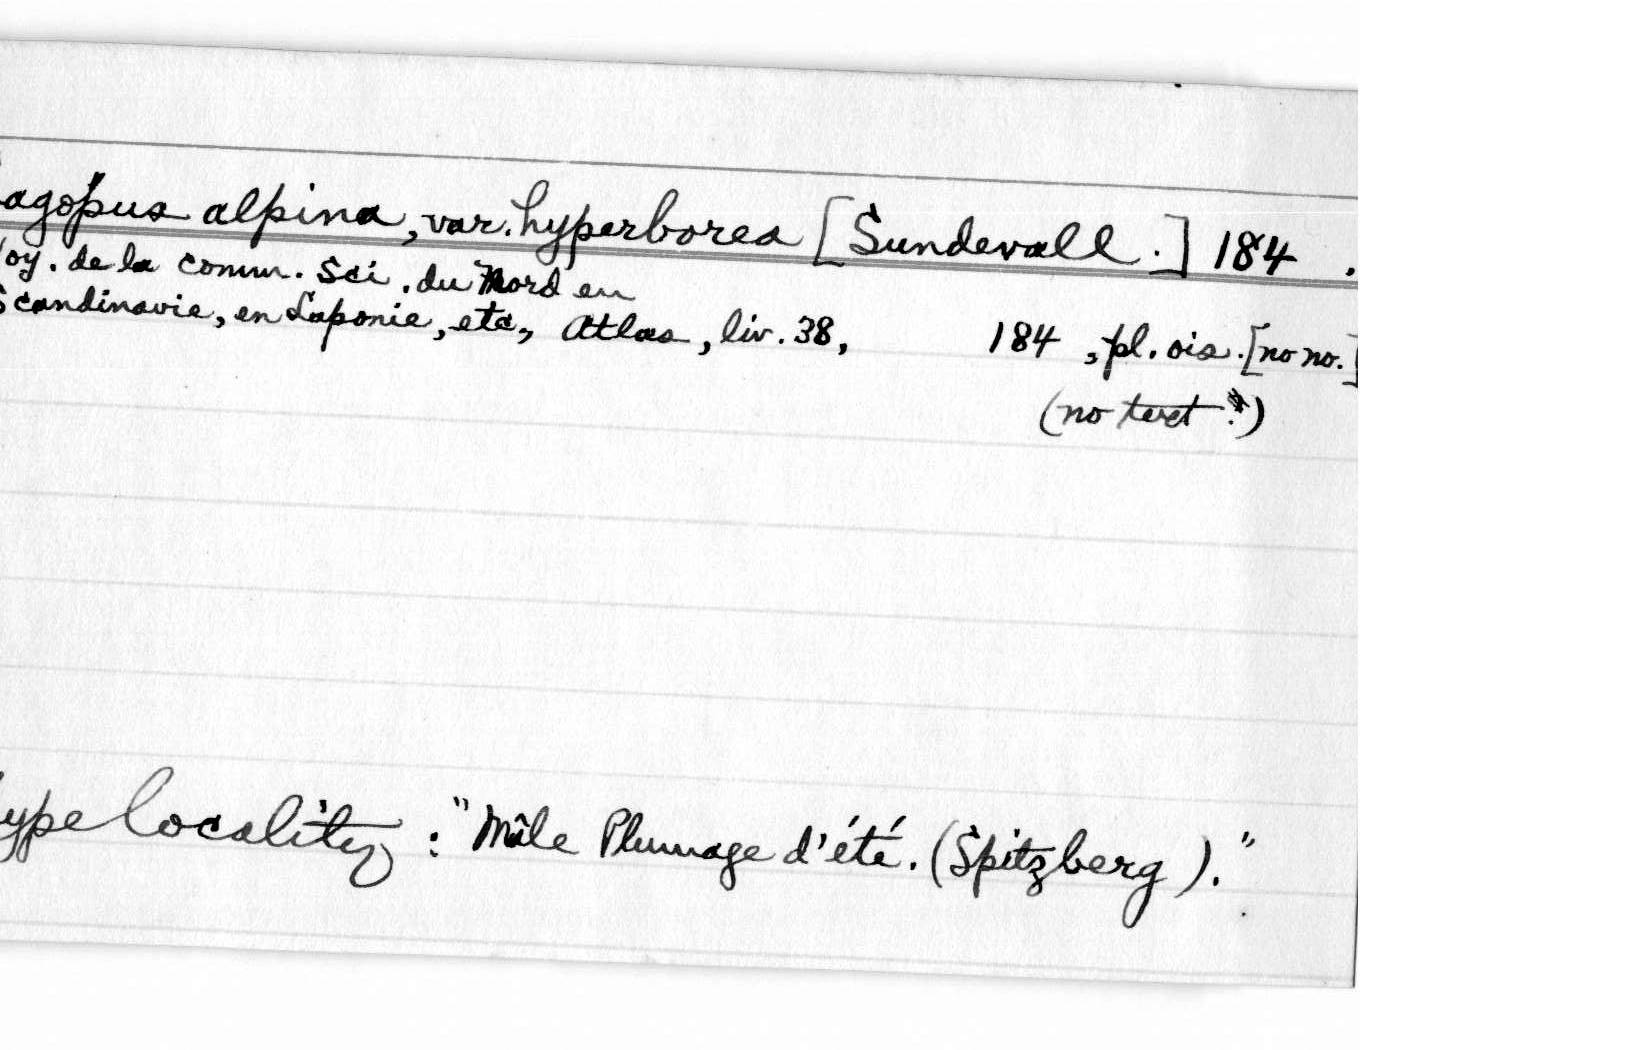 agopus alpina, var. hyperborea [Sundevall.] 184 .
oy. de la comm. Sci. du Nord en
Scandinavie, en Laponie, etc., Atlas, liv. 38, 184 , pl. ois. [no no.]
(no text?)
ype locality : "Mâle Plumage d'été. (Spitzberg )."